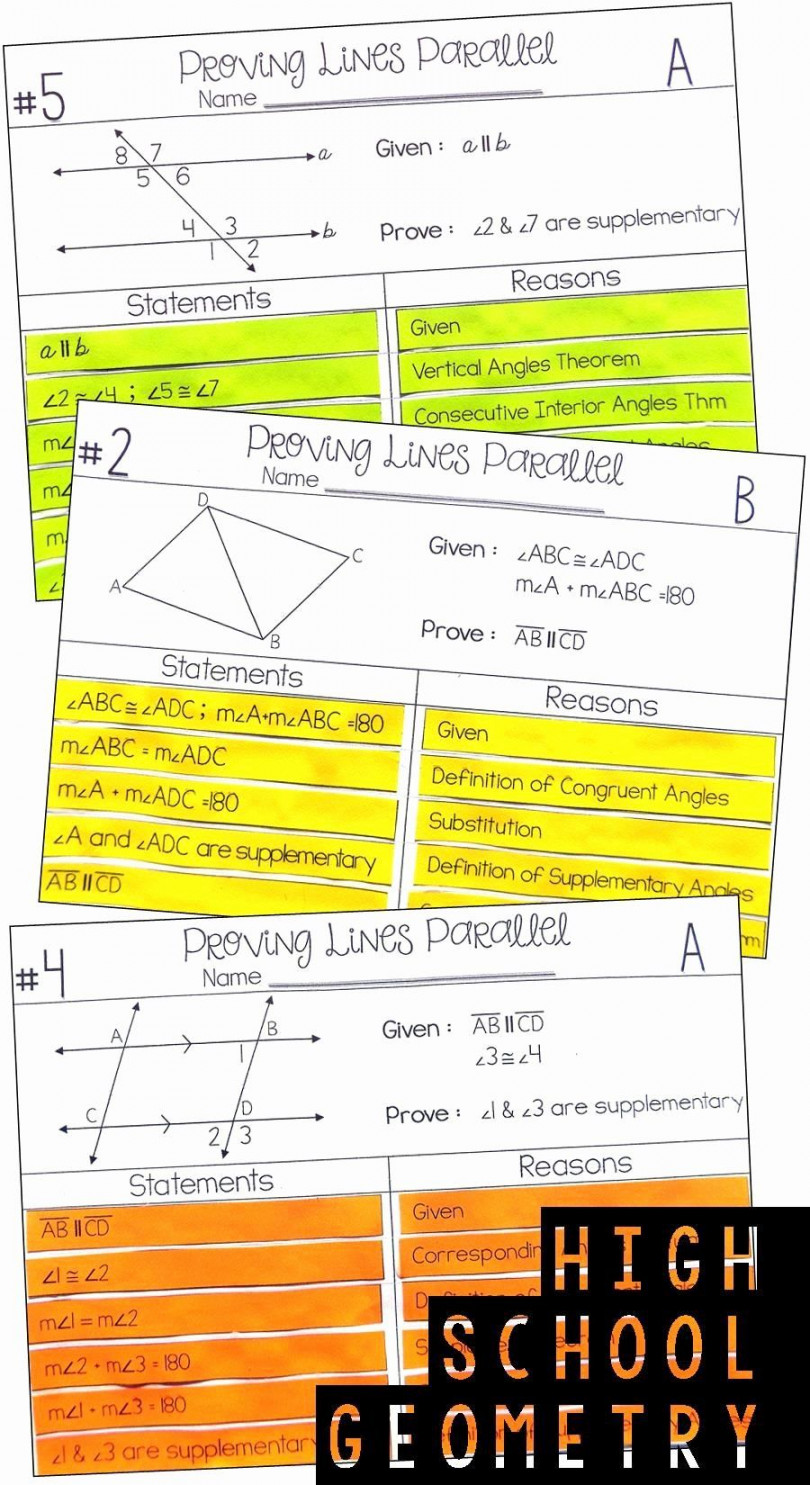 Proving Lines Parallel
A
#5
Name
8 7
a
5 6
4 3
b
1 2
Given : a || b
Prove : ∠2 & ∠7 are supplementary
Statements
Reasons
a || b
Given
∠2 ≅ ∠4 ; ∠5 ≅ ∠7
Vertical Angles Theorem
Consecutive Interior Angles Thm
m∠
Angles
m∠
m
∠
Proving Lines Parallel
B
#2
Name
D
C
A
B
Given : ∠ABC ≅ ∠ADC
m∠A + m∠ABC =180
Prove : AB || CD
Statements
Reasons
∠ABC ≅ ∠ADC ; m∠A+m∠ABC =180
Given
m∠ABC = m∠ADC
Definition of Congruent Angles
m∠A + m∠ADC =180
Substitution
∠A and ∠ADC are supplementary
Definition of Supplementary Angles
AB || CD
Proving Lines Parallel
A
#4
Name
A
B
1
C
D
2 3
Given : AB || CD
∠3 ≅ ∠4
Prove : ∠1 & ∠3 are supplementary
Statements
Reasons
AB || CD
Given
∠1 ≅ ∠2
m∠1 = m∠2
m∠2 + m∠3 = 180
m∠1 + m∠3 = 180
∠1 & ∠3 are supplementar
HIGH
SCHOOL
GEOMETRY